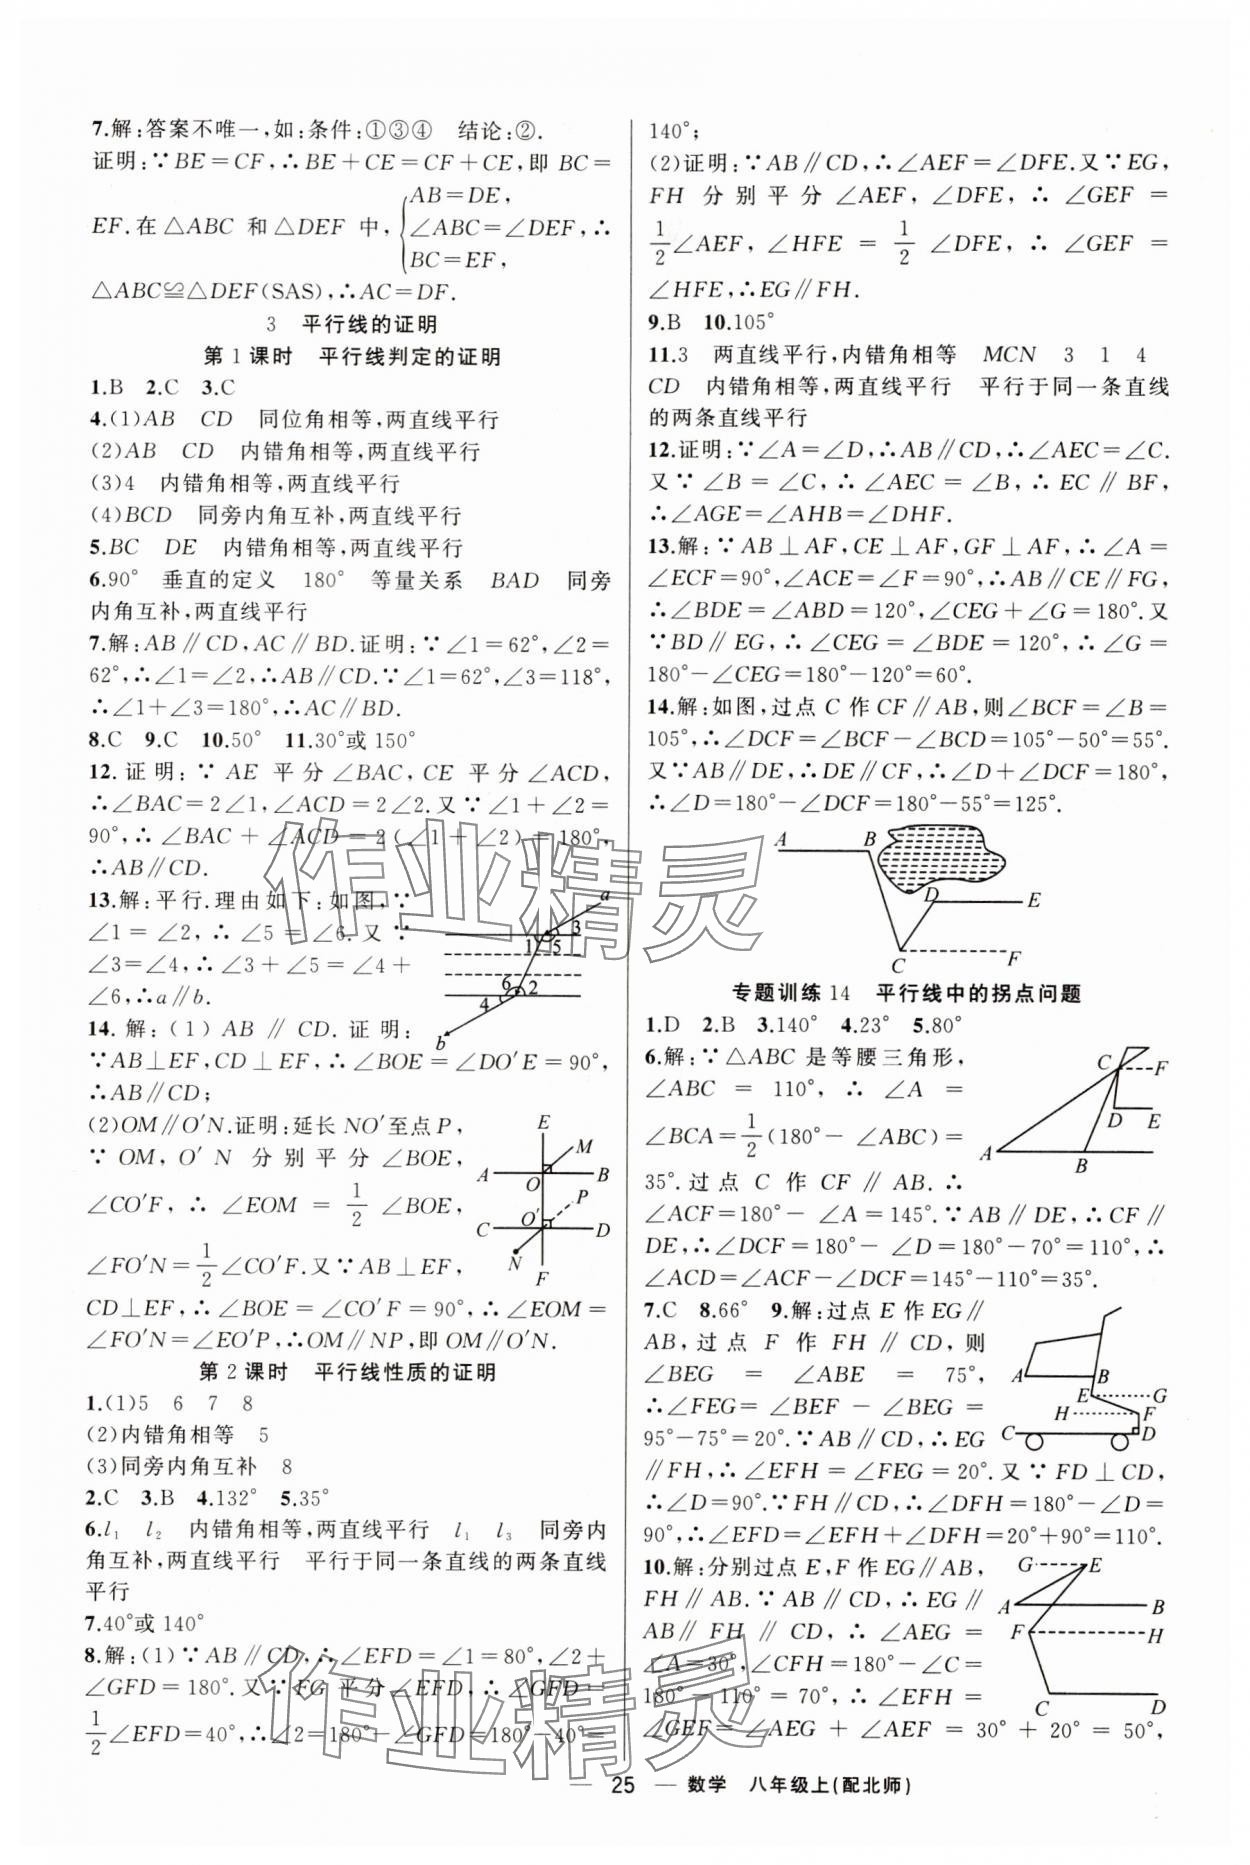 7.解:答案不唯一,如:条件:①③④ 结论:②.
证明:∵BE=CF,∴BE+CE=CF+CE,即 BC=
EF.在△ABC 和△DEF 中,{AB=DE,
∠ABC=∠DEF,∴
BC=EF,
△ABC≌△DEF(SAS),∴AC=DF.
3 平行线的证明
第1课时 平行线判定的证明
1.B 2.C 3.C
4.(1)AB CD 同位角相等,两直线平行
(2)AB CD 内错角相等,两直线平行
(3)4 内错角相等,两直线平行
(4)BCD 同旁内角互补,两直线平行
5.BC DE 内错角相等,两直线平行
6.90° 垂直的定义 180° 等量关系 BAD 同旁
内角互补,两直线平行
7.解:AB∥CD,AC∥BD.证明:∵∠1=62°,∠2=
62°,∴∠1=∠2,∴AB∥CD.∵∠1=62°,∠3=118°,
∴∠1+∠3=180°,∴AC∥BD.
8.C 9.C 10.50° 11.30°或150°
12.证明:∵AE 平分∠BAC,CE 平分∠ACD,
∴∠BAC=2∠1,∠ACD=2∠2.又∵∠1+∠2=
90°,∴∠BAC+∠ACD=2(∠1+∠2)=180°,
∴AB∥CD.
13.解:平行.理由如下:如图,∵
∠1=∠2,∴∠5=∠6.又∵
∠3=∠4,∴∠3+∠5=∠4+
∠6,∴a∥b.
a
3
1 5
6
2
4
b
14.解:(1)AB∥CD.证明:
∵AB⊥EF,CD⊥EF,∴∠BOE=∠DO′E=90°,
∴AB∥CD;
(2)OM∥O′N.证明:延长 NO′至点P,
∵OM,O′N 分别平分∠BOE,
∠CO′F,∴∠EOM=1/2∠BOE,
∠FO′N=1/2∠CO′F.又∵AB⊥EF,
CD⊥EF,∴∠BOE=∠CO′F=90°,∴∠EOM=
∠FO′N=∠EO′P,∴OM∥NP,即OM∥O′N.
E
M
A O B
P
C O′ D
N
F
第2课时 平行线性质的证明
1.(1)5 6 7 8
(2)内错角相等 5
(3)同旁内角互补 8
2.C 3.B 4.132° 5.35°
6.l₁ l₂ 内错角相等,两直线平行 l₁ l₃ 同旁内
角互补,两直线平行 平行于同一条直线的两条直线
平行
7.40°或140°
8.解:(1)∵AB∥CD,∴∠EFD=∠1=80°,∠2+
∠GFD=180°.又∵FG 平分∠EFD,∴∠GFD=
1/2∠EFD=40°,∴∠2=180°-∠GFD=180°-40°=
140°;
(2)证明:∵AB∥CD,∴∠AEF=∠DFE.又∵EG,
FH 分别平分∠AEF,∠DFE,∴∠GEF=
1/2∠AEF,∠HFE=1/2∠DFE,∴∠GEF=
∠HFE,∴EG∥FH.
9.B 10.105°
11.3 两直线平行,内错角相等 MCN 3 1 4
CD 内错角相等,两直线平行 平行于同一条直线
的两条直线平行
12.证明:∵∠A=∠D,∴AB∥CD,∴∠AEC=∠C.
又∵∠B=∠C,∴∠AEC=∠B,∴EC∥BF,
∴∠AGE=∠AHB=∠DHF.
13.解:∵AB⊥AF,CE⊥AF,GF⊥AF,∴∠A=
∠ECF=90°,∠ACE=∠F=90°,∴AB∥CE∥FG,
∴∠BDE=∠ABD=120°,∠CEG+∠G=180°.又
∵BD∥EG,∴∠CEG=∠BDE=120°,∴∠G=
180°-∠CEG=180°-120°=60°.
14.解:如图,过点C作CF∥AB,则∠BCF=∠B=
105°,∴∠DCF=∠BCF-∠BCD=105°-50°=55°.
又∵AB∥DE,∴DE∥CF,∴∠D+∠DCF=180°,
∴∠D=180°-∠DCF=180°-55°=125°.
A B
D E
C F
专题训练14 平行线中的拐点问题
1.D 2.B 3.140° 4.23° 5.80°
6.解:∵△ABC 是等腰三角形,
∠ABC=110°,∴∠A=
∠BCA=1/2(180°-∠ABC)=
35°.过点C作CF∥AB.∴
∠ACF=180°-∠A=145°.∵AB∥DE,∴CF∥
DE,∴∠DCF=180°-∠D=180°-70°=110°,∴
∠ACD=∠ACF-∠DCF=145°-110°=35°.
C F
D E
A B
7.C 8.66° 9.解:过点E作EG∥
AB,过点F作FH∥CD,则
∠BEG=∠ABE=75°,
∴∠FEG=∠BEF-∠BEG=
95°-75°=20°.∵AB∥CD,∴EG
∥FH,∴∠EFH=∠FEG=20°.又∵FD⊥CD,
∴∠D=90°.∵FH∥CD,∴∠DFH=180°-∠D=
90°,∴∠EFD=∠EFH+∠DFH=20°+90°=110°.
A B
E G
H F
C D
10.解:分别过点E,F作EG∥AB,
FH∥AB.∵AB∥CD,∴EG∥
AB∥FH∥CD,∴∠AEG=
∠A=30°,∠CFH=180°-∠C=
180°-110°=70°,∴∠EFH=
∠GEF=∠AEG+∠AEF=30°+20°=50°,
G E
A B
F H
C D
作业精灵
作业精灵
— 25 — 数学 八年级上(配北师)